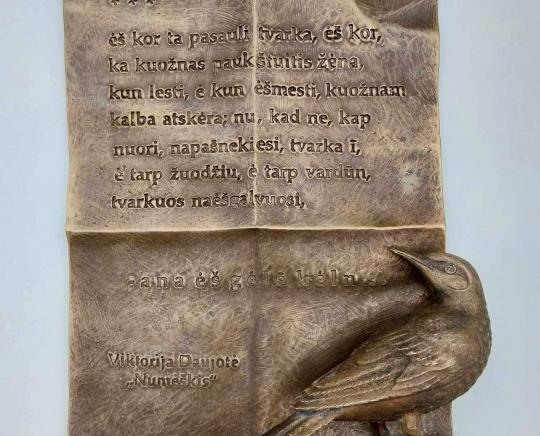 * * *
ėš kor ta pasauli tvarka, ėš kor,
ka kuožnas paukštuitis žėna,
kun lesti, ė kun ėšmesti, kuožnam
kalba atskėra; nu, kad ne, kap
nuori, napašnekiesi, tvarka ī,
ė tarp žuodžiu, ė tarp vardūn,
tvarkuos naėšgalvuosi,
ana ėš gėlė kėln...
Viktorija Daujotė
„Numėškis“